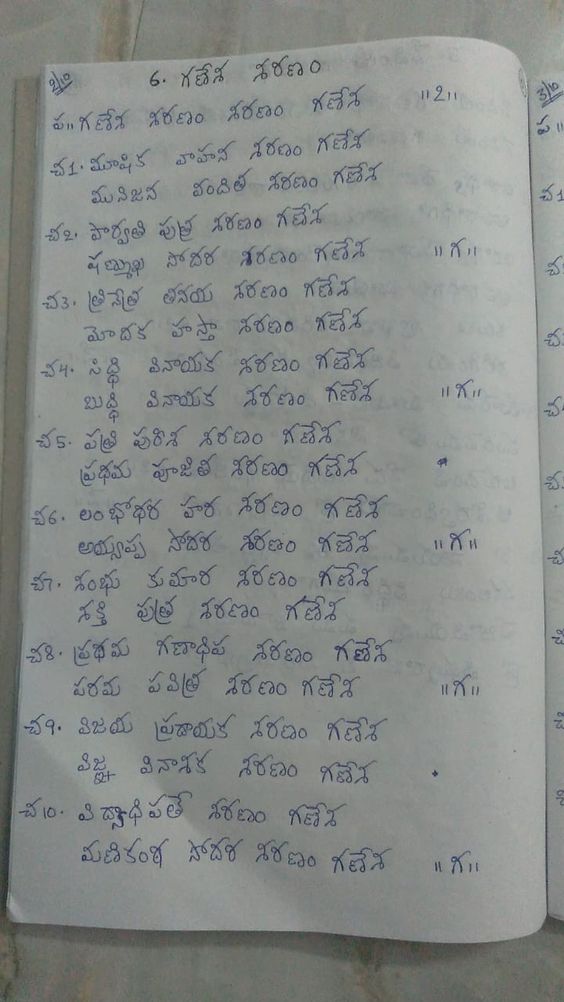 2/12
6. గణేశ శరణం
ప॥ గణేశ శరణం శరణం గణేశ ॥2॥
చ1. మూషిక వాహన శరణం గణేశ
మునిజన వందిత శరణం గణేశ
చ2. పార్వతి పుత్ర శరణం గణేశ
షణ్ముఖ సోదర శరణం గణేశ ॥గ॥
చ3. త్రినేత్ర తనయ శరణం గణేశ
మోదక హస్తా శరణం గణేశ
చ4. సిద్ధి వినాయక శరణం గణేశ
బుద్ధి వినాయక శరణం గణేశ ॥గ॥
చ5. పత్రి పురిశ శరణం గణేశ
ప్రథమ పూజిత శరణం గణేశ
చ6. లంభోధర హర శరణం గణేశ
అయ్యప్ప సోదర శరణం గణేశ ॥గ॥
చ7. శంభు కుమార శరణం గణేశ
శక్తి పుత్ర శరణం గణేశ
చ8. ప్రథమ గణాధిప శరణం గణేశ
పరమ పవిత్ర శరణం గణేశ ॥గ॥
చ9. విజయ ప్రదాయక శరణం గణేశ
విజ్ఞ వినాశక శరణం గణేశ
చ10. విద్యాధిపతే శరణం గణేశ
మణికంఠ సోదర శరణం గణేశ ॥గ॥
3/12
ప॥
చ1